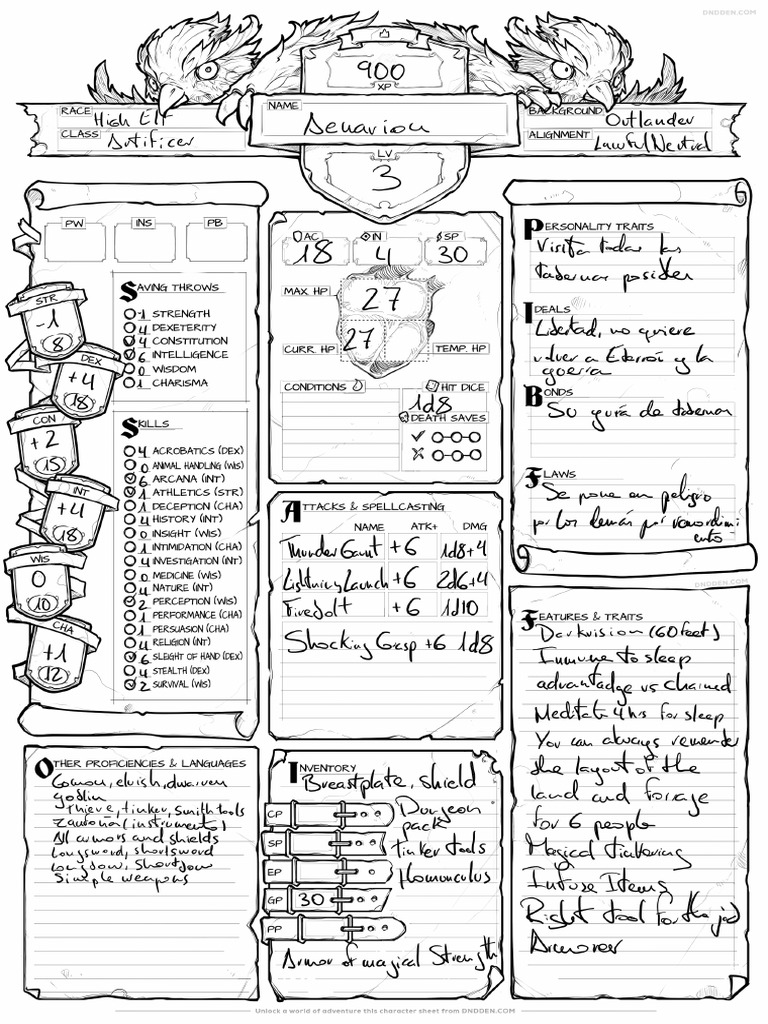 DNDDEN.COM
900
XP
RACE High Elf
CLASS Artificer
NAME
Denarion
BACKGROUND Outlander
ALIGNMENT Lawful Neutral
LV
3
PW INS PB
STR
-1
8
DEX
+4
18
CON
+2
15
INT
+4
18
WIS
0
10
CHA
+1
12
SAVING THROWS
-1 STRENGTH
4 DEXETERITY
4 CONSTITUTION
6 INTELLIGENCE
0 WISDOM
1 CHARISMA
SKILLS
4 ACROBATICS (DEX)
0 ANIMAL HANDLING (WIS)
6 ARCANA (INT)
1 ATHLETICS (STR)
1 DECEPTION (CHA)
4 HISTORY (INT)
0 INSIGHT (WIS)
1 INTIMIDATION (CHA)
4 INVESTIGATION (INT)
0 MEDICINE (WIS)
4 NATURE (INT)
2 PERCEPTION (WIS)
1 PERFORMANCE (CHA)
1 PERSUASION (CHA)
4 RELIGION (INT)
6 SLEIGHT OF HAND (DEX)
4 STEALTH (DEX)
2 SURVIVAL (WIS)
AC IN SP
18 4 30
MAX. HP 27
CURR. HP 27 TEMP. HP
CONDITIONS
HIT DICE
1d8
DEATH SAVES
ATTACKS & SPELLCASTING
NAME ATK+ DMG
Thunder Gaunt +6 1d8+4
Lightning Launch +6 2d6+4
Firebolt +6 1d10
Shocking Grasp +6 1d8
PERSONALITY TRAITS
Visitar todas las
tabernas posibles
IDEALS
Libertad, no quiere
volver a y la
guerra
BONDS
Su guía de tabernas
FLAWS
Se pone en peligro
por los demás por remordimi
ento
DNDDEN.COM
FEATURES & TRAITS
Darkvision (60 feet)
Immune to sleep
advantadge vs charmed
Meditate 4 hrs for sleep
You can always remember
the layout of the
land and forrage
for 6 people
Magical tinkering
Infuse Items
Right tool for the job
Armorer
OTHER PROFICIENCIES & LANGUAGES
Comon, elvish, dwarven
goblin
Thieve, tinker, smith tools
Zanfoña (instrument)
All armors and shields
Longsword, shortsword
Longbow, Shortbow
Simple weapons
INVENTORY
Breastplate, shield
Dungeon
pack
tinker tools
Homonculus
CP
SP
EP
GP 30
PP
Armor of magical Strength
Unlock a world of adventure this character sheet from DNDDEN.COM